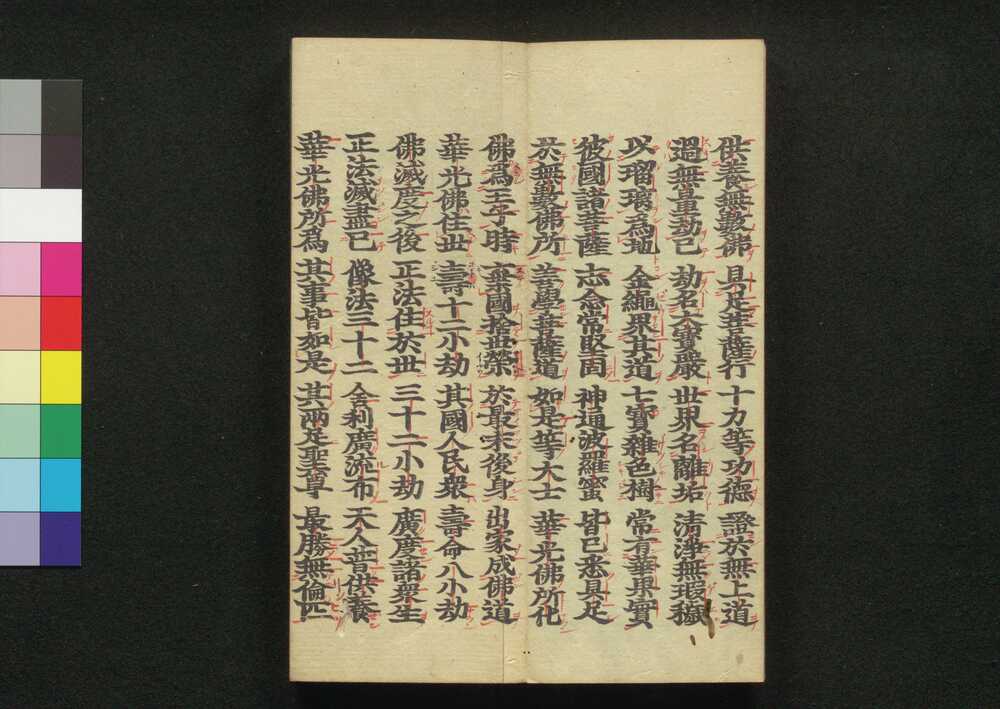 供養無數佛 具足菩薩行 十力等功德 證於無上道
過無量劫已 劫名大寶嚴 世界名離垢 清淨無瑕穢
以瑠璃爲地 金繩界其道 七寶雜色樹 常有華果實
彼國諸菩薩 志念常堅固 神通波羅蜜 皆已悉具足
於無數佛所 善學菩薩道 如是等大士 華光佛所化
佛爲王子時 棄國捨世榮 於最末後身 出家成佛道
華光佛住世 壽十二小劫 其國人民衆 壽命八小劫
佛滅度之後 正法住於世 三十二小劫 廣度諸衆生
正法滅盡已 像法三十二 舍利廣流布 天人普供養
華光佛所爲 其事皆如是 其兩足聖尊 最勝無倫匹